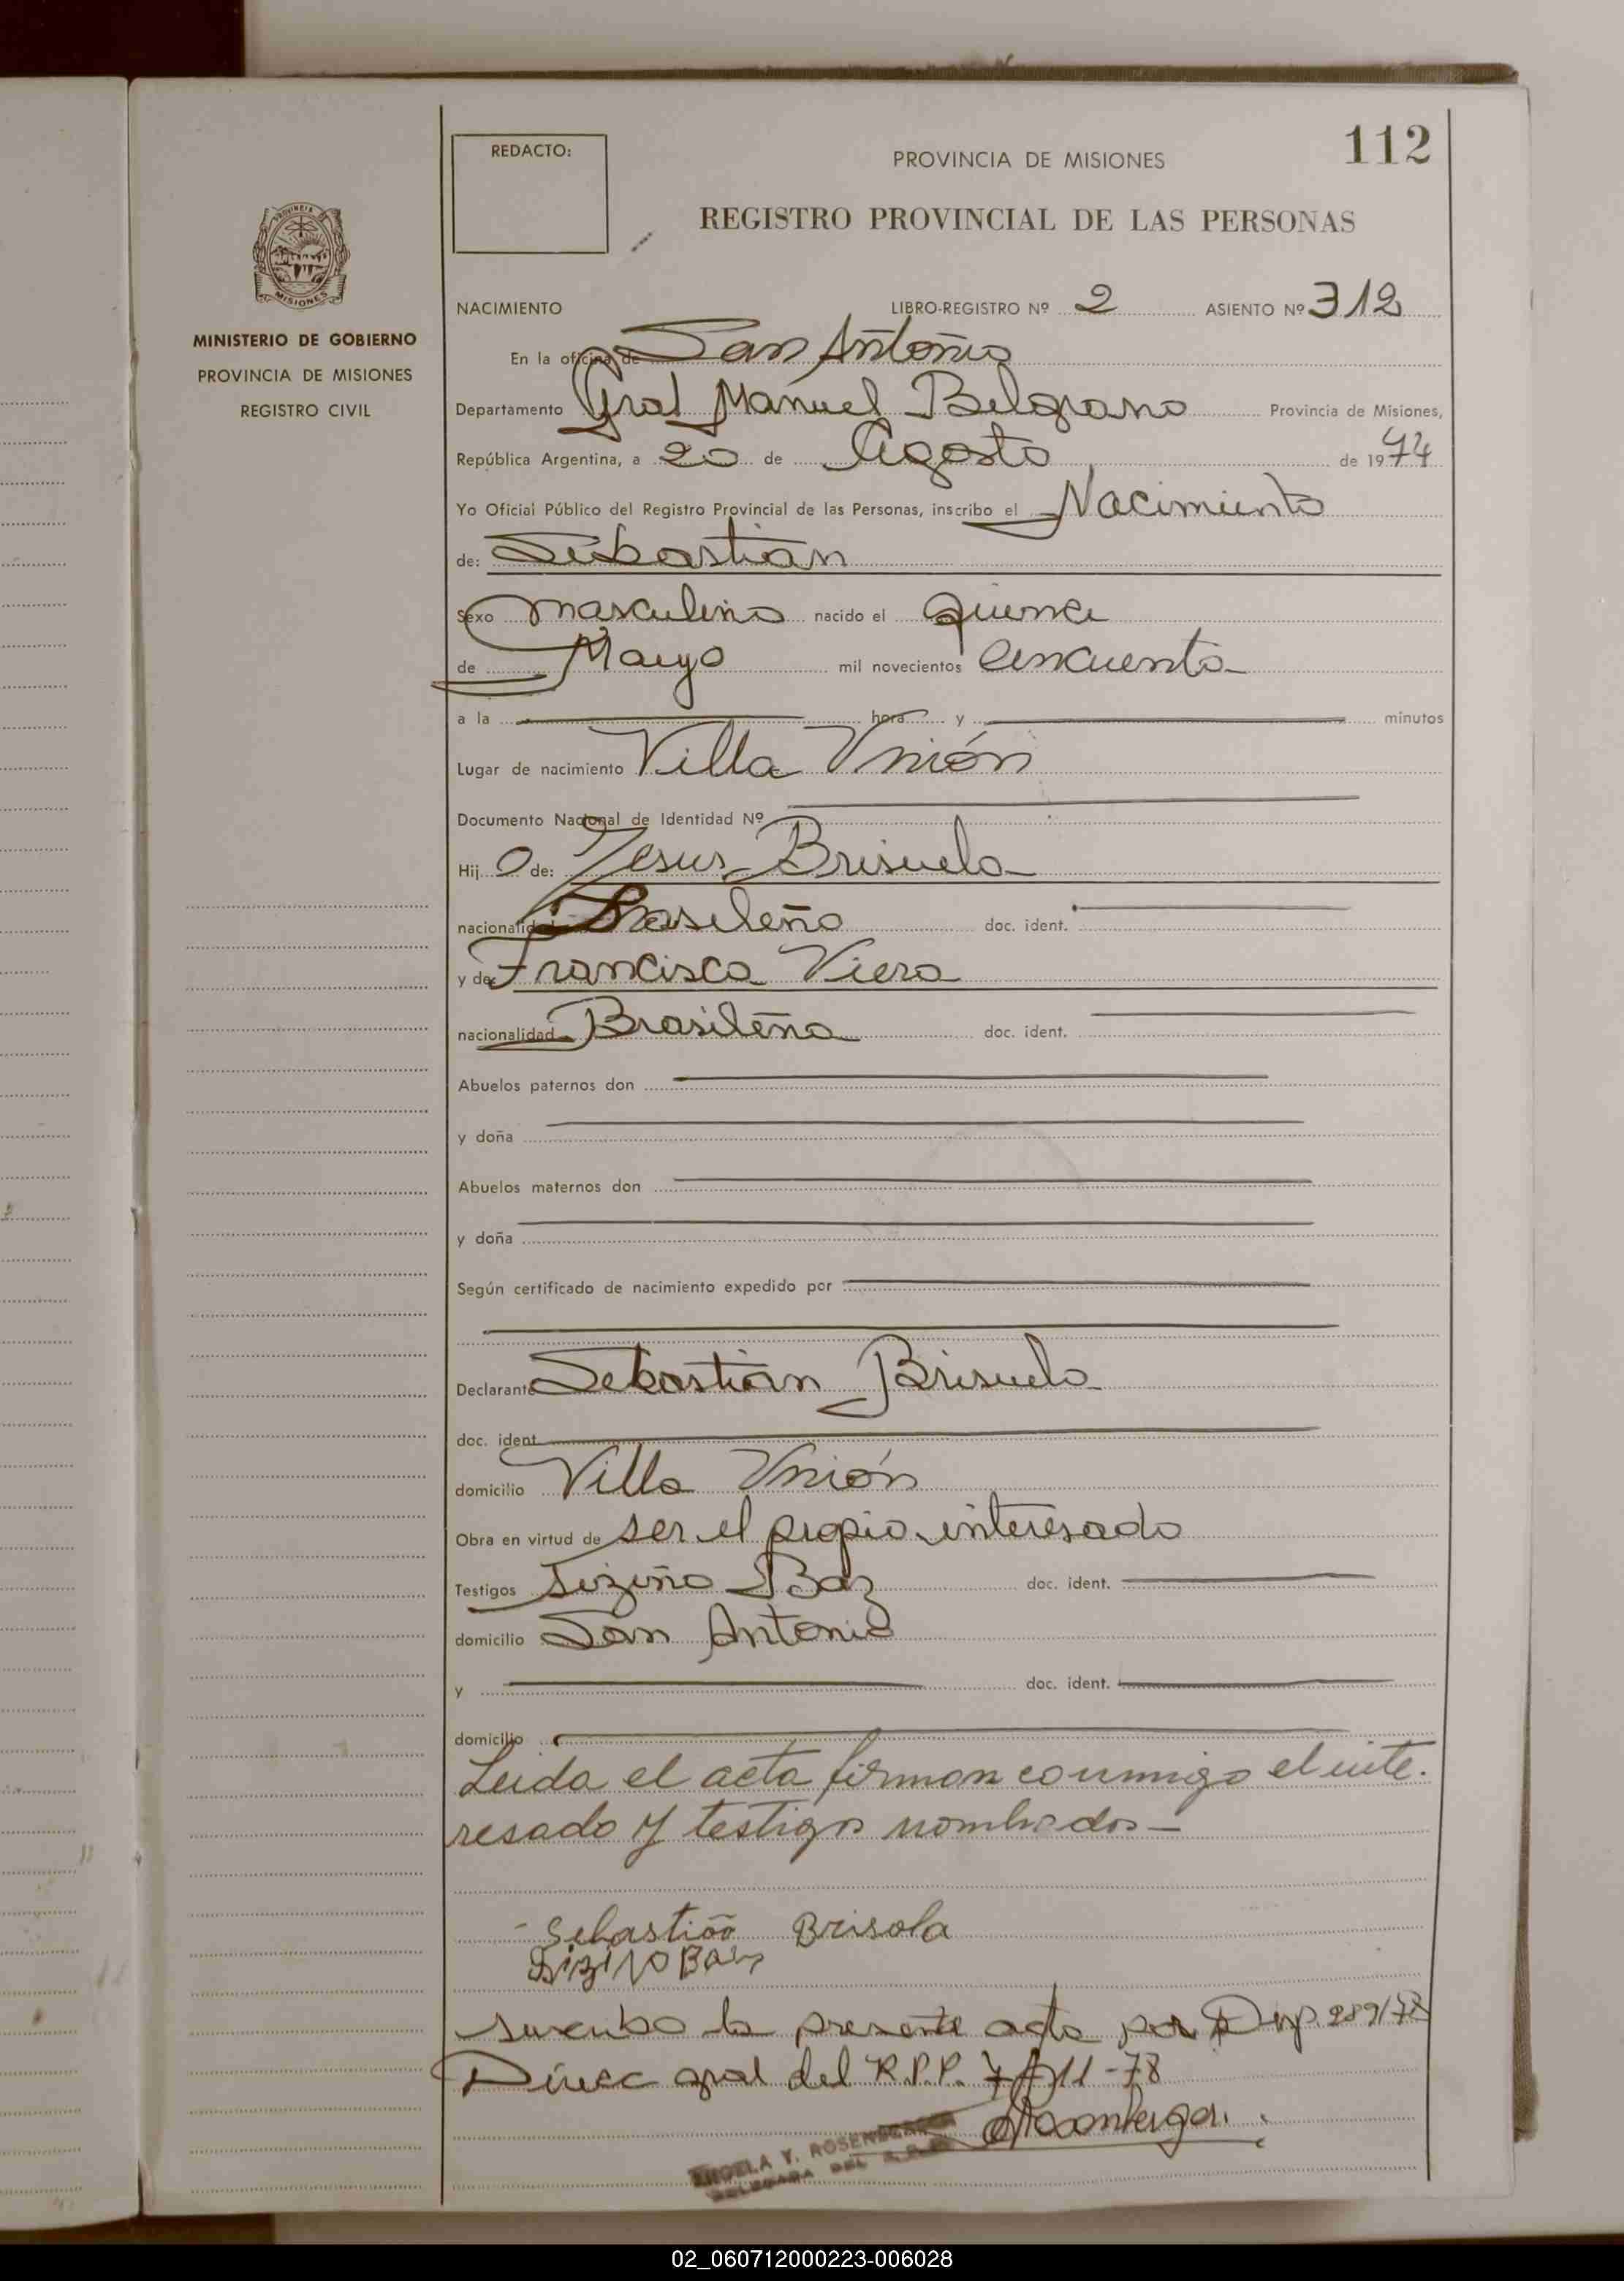 112
REDACTO:
PROVINCIA DE MISIONES
REGISTRO PROVINCIAL DE LAS PERSONAS
MISIONES
MINISTERIO DE GOBIERNO
PROVINCIA DE MISIONES
REGISTRO CIVIL
NACIMIENTO LIBRO-REGISTRO Nº 2 ASIENTO Nº 312
En la oficina de San Antonio
Departamento Gral Manuel Belgrano Provincia de Misiones,
República Argentina, a 20 de Agosto de 1974
Yo Oficial Público del Registro Provincial de las Personas, inscribo el Nacimiento
de: Sebastian
Sexo masculino nacido el quince
de Mayo mil novecientos cincuenta
a la hora y minutos
Lugar de nacimiento Villa Unión
Documento Nacional de Identidad Nº
Hijo de: Jesus Brisuela
nacionalidad Brasileño doc. ident.
y de Francisca Viera
nacionalidad Brasileña doc. ident.
Abuelos paternos don
y doña
Abuelos maternos don
y doña
Según certificado de nacimiento expedido por
Declarante Sebastian Brisuela
doc. ident.
domicilio Villa Unión
Obra en virtud de ser el propio interesado
Testigos Sizino Baz doc. ident.
domicilio San Antonio
y doc. ident.
domicilio
Leida el acta firman conmigo el inte.
resado y testigos nombrados—
Sebastião Brisola
SiziNO BAIZ
suscribo la presente acta por Disp. 289/78
Direc gral del R.P.P. 7-11-78
ANGELA Y. ROSENBERGER
DELEGADA DEL R.P.P.
02_060712000223-006028